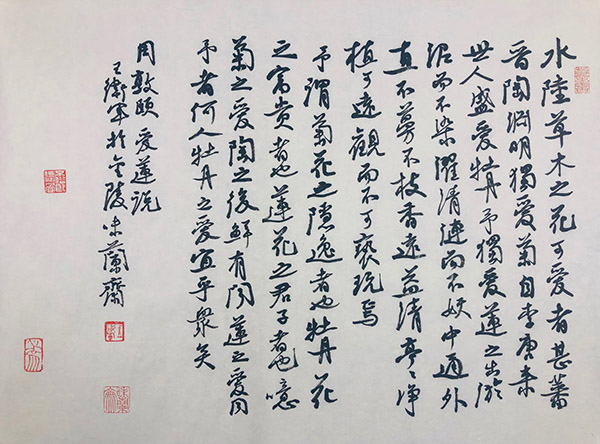 水陸草木之花可愛者甚蕃
晉陶淵明獨愛菊自李唐来
世人盛愛牡丹予獨愛蓮之出淤
泥而不染濯清漣而不妖中通外
直不蔓不枝香遠益清亭〻净
植可遠觀而不可褻玩焉
予謂菊花之隱逸者也牡丹花
之富貴者也蓮花之君子者也噫
菊之愛陶之後鮮有闻蓮之愛同
予者何人牡丹之愛宜乎眾矣
周敦頤 愛蓮説
王衛軍於金陵味蘭齋